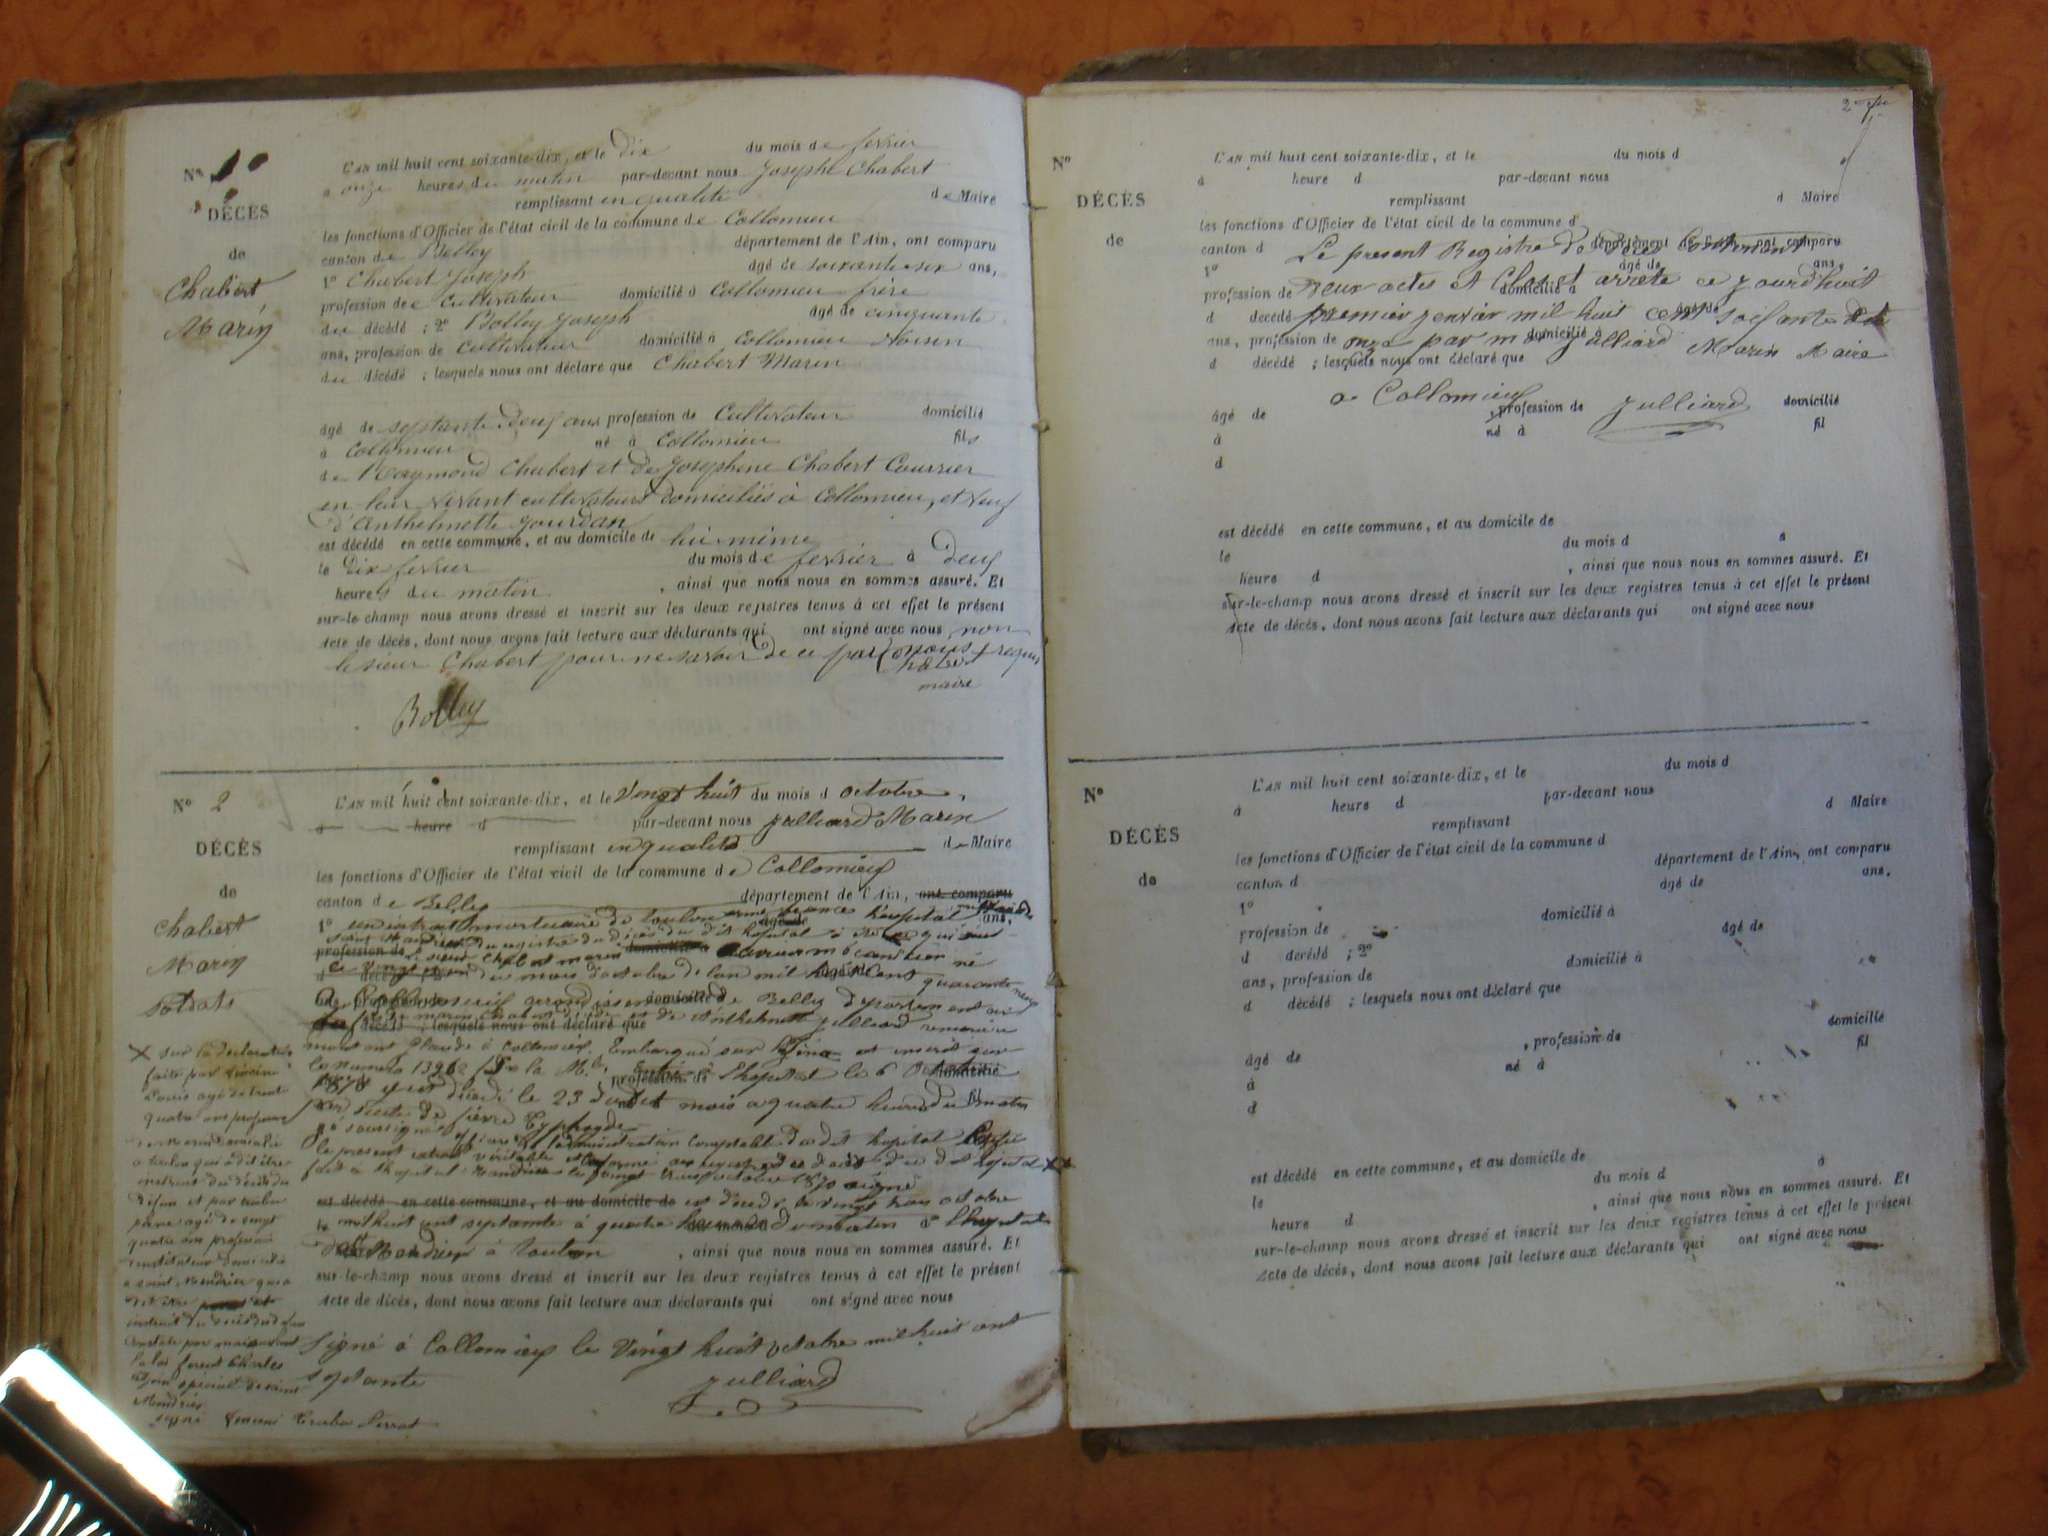 N° 1
DÉCÈS
de
Chabert
Marin
L'AN mil huit cent soixante-dix, et le Dix du mois de fevrier
à onze heures du matin par-devant nous Joseph Chabert
remplissant en qualité de Maire
les fonctions d'Officier de l'état civil de la commune de Collomieu
canton de Belley département de l'Ain, ont comparu
1° Chabert Joseph âgé de soixante six ans,
profession de Cultivateur domicilié à Collomieu frère
du décédé ; 2° Bolley Joseph âgé de cinquante
ans, profession de cultivateur domicilié à Collomieu Voisin
du décédé ; lesquels nous ont déclaré que Chabert Marin
âgé de septante deux ans profession de Cultivateur domicilié
à Collomieu né à Collomieu fils
de Raymond Chabert et de Josephine Chabert Courrier
en leur vivant cultivateurs domiciliés à Collomieu, et veuf
d'Anthelmette Jourdan
est décédé en cette commune, et au domicile de lui même
le Dix fevrier du mois de fevrier à Deux
heures du matin , ainsi que nous nous en sommes assuré. Et
sur-le-champ nous avons dressé et inscrit sur les deux registres tenus à cet effet le présent
Acte de décès, dont nous avons fait lecture aux déclarants qui ont signé avec nous non
le sieur Chabert pour ne savoir de ce par nous requis
Chabert
maire
Bolley
N° 2
DÉCÈS
de
Chabert
Marin
Soldats
L'AN mil huit cent soixante-dix, et le Vingt huit du mois d octobre,
à heure d par-devant nous Julliard Marin
remplissant en qualité de Maire
les fonctions d'Officier de l'état civil de la commune de Collomieux
canton de Belley département de l'Ain, ont comparu
1° un extrait mortuaire de Toulon hopital
Saint Mandrier du registre du décès du dit hopital
profession de domicilié à
le vingt du mois d'octobre de l'an mil huit cent quarante
à Collomieux arrondissement de Belley departement
décédé ; lesquels nous ont déclaré que et de Anthelmette Julliard
à Collomieux. Embarqué sur et inscrit
le numero profession de l'hopital le 6 Octobre domicilié
1870 y est décédé le 23 du dit mois a quatre heures du matin
par suite de fièvre Typhoyde
le soussigné officier de l'administration comptable du dit hopital
le present extrait véritable et conforme au registre de décès du dit hopital
fait a l'hopital octobre 1870 signé
est décédé en cette commune, et au domicile de est décédé le vingt trois octobre
le mil huit cent septante à quatre heures du matin à l'hopital
de St Mandrier à Toulon , ainsi que nous nous en sommes assuré. Et
sur-le-champ nous avons dressé et inscrit sur les deux registres tenus à cet effet le présent
Acte de décès, dont nous avons fait lecture aux déclarants qui ont signé avec nous
Signé à Collomieux le Vingt huit octobre mil huit cent
septante Julliard
X sur la declaration
faite par
Louis agé de trente
quatre ans profession
de domicilié
a toulon qui a dit être
du décès du
défun et par
pierre agé de vingt
quatre ans profession
instituteur domicilié
a saint Mandrier qui a
dit être
instruit du décès du défun
constaté par moi suivant
la loi Charles
spécial de saint
Mandrier
signé
2
N°
DÉCÈS
de
L'AN mil huit cent soixante-dix, et le du mois d
à heure d par-devant nous
remplissant d Maire
les fonctions d'Officier de l'état civil de la commune d
canton d département de l'Ain, ont comparu
Le present Registre de Décé Contenant
1° âgé de ans,
profession de domicilié à
deux actes et Clos et arrete ce jourd'huit
d décédé ; 2° âgé de
premier jenvier mil huit cent soisante
ans, profession de domicilié à
onze par moi Julliard Marin Maire
d décédé ; lesquels nous ont déclaré que
a Collomieux Julliard
âgé de , profession de domicilié
à né à fil
d
est décédé en cette commune, et au domicile de
le du mois d à
heure d , ainsi que nous nous en sommes assuré. Et
sur-le-champ nous avons dressé et inscrit sur les deux registres tenus à cet effet le présent
Acte de décès, dont nous avons fait lecture aux déclarants qui ont signé avec nous
N°
DÉCÈS
de
L'AN mil huit cent soixante-dix, et le du mois d
à heure d par-devant nous
remplissant d Maire
les fonctions d'Officier de l'état civil de la commune d
canton d département de l'Ain, ont comparu
1° âgé de ans.
profession de domicilié à
d décédé ; 2° âgé de
ans, profession de domicilié à
d décédé ; lesquels nous ont déclaré que
âgé de , profession de domicilié
à né à fil
d
est décédé en cette commune, et au domicile de
le du mois d à
heure d , ainsi que nous nous en sommes assuré. Et
sur-le-champ nous avons dressé et inscrit sur les deux registres tenus à cet effet le présent
Acte de décès, dont nous avons fait lecture aux déclarants qui ont signé avec nous